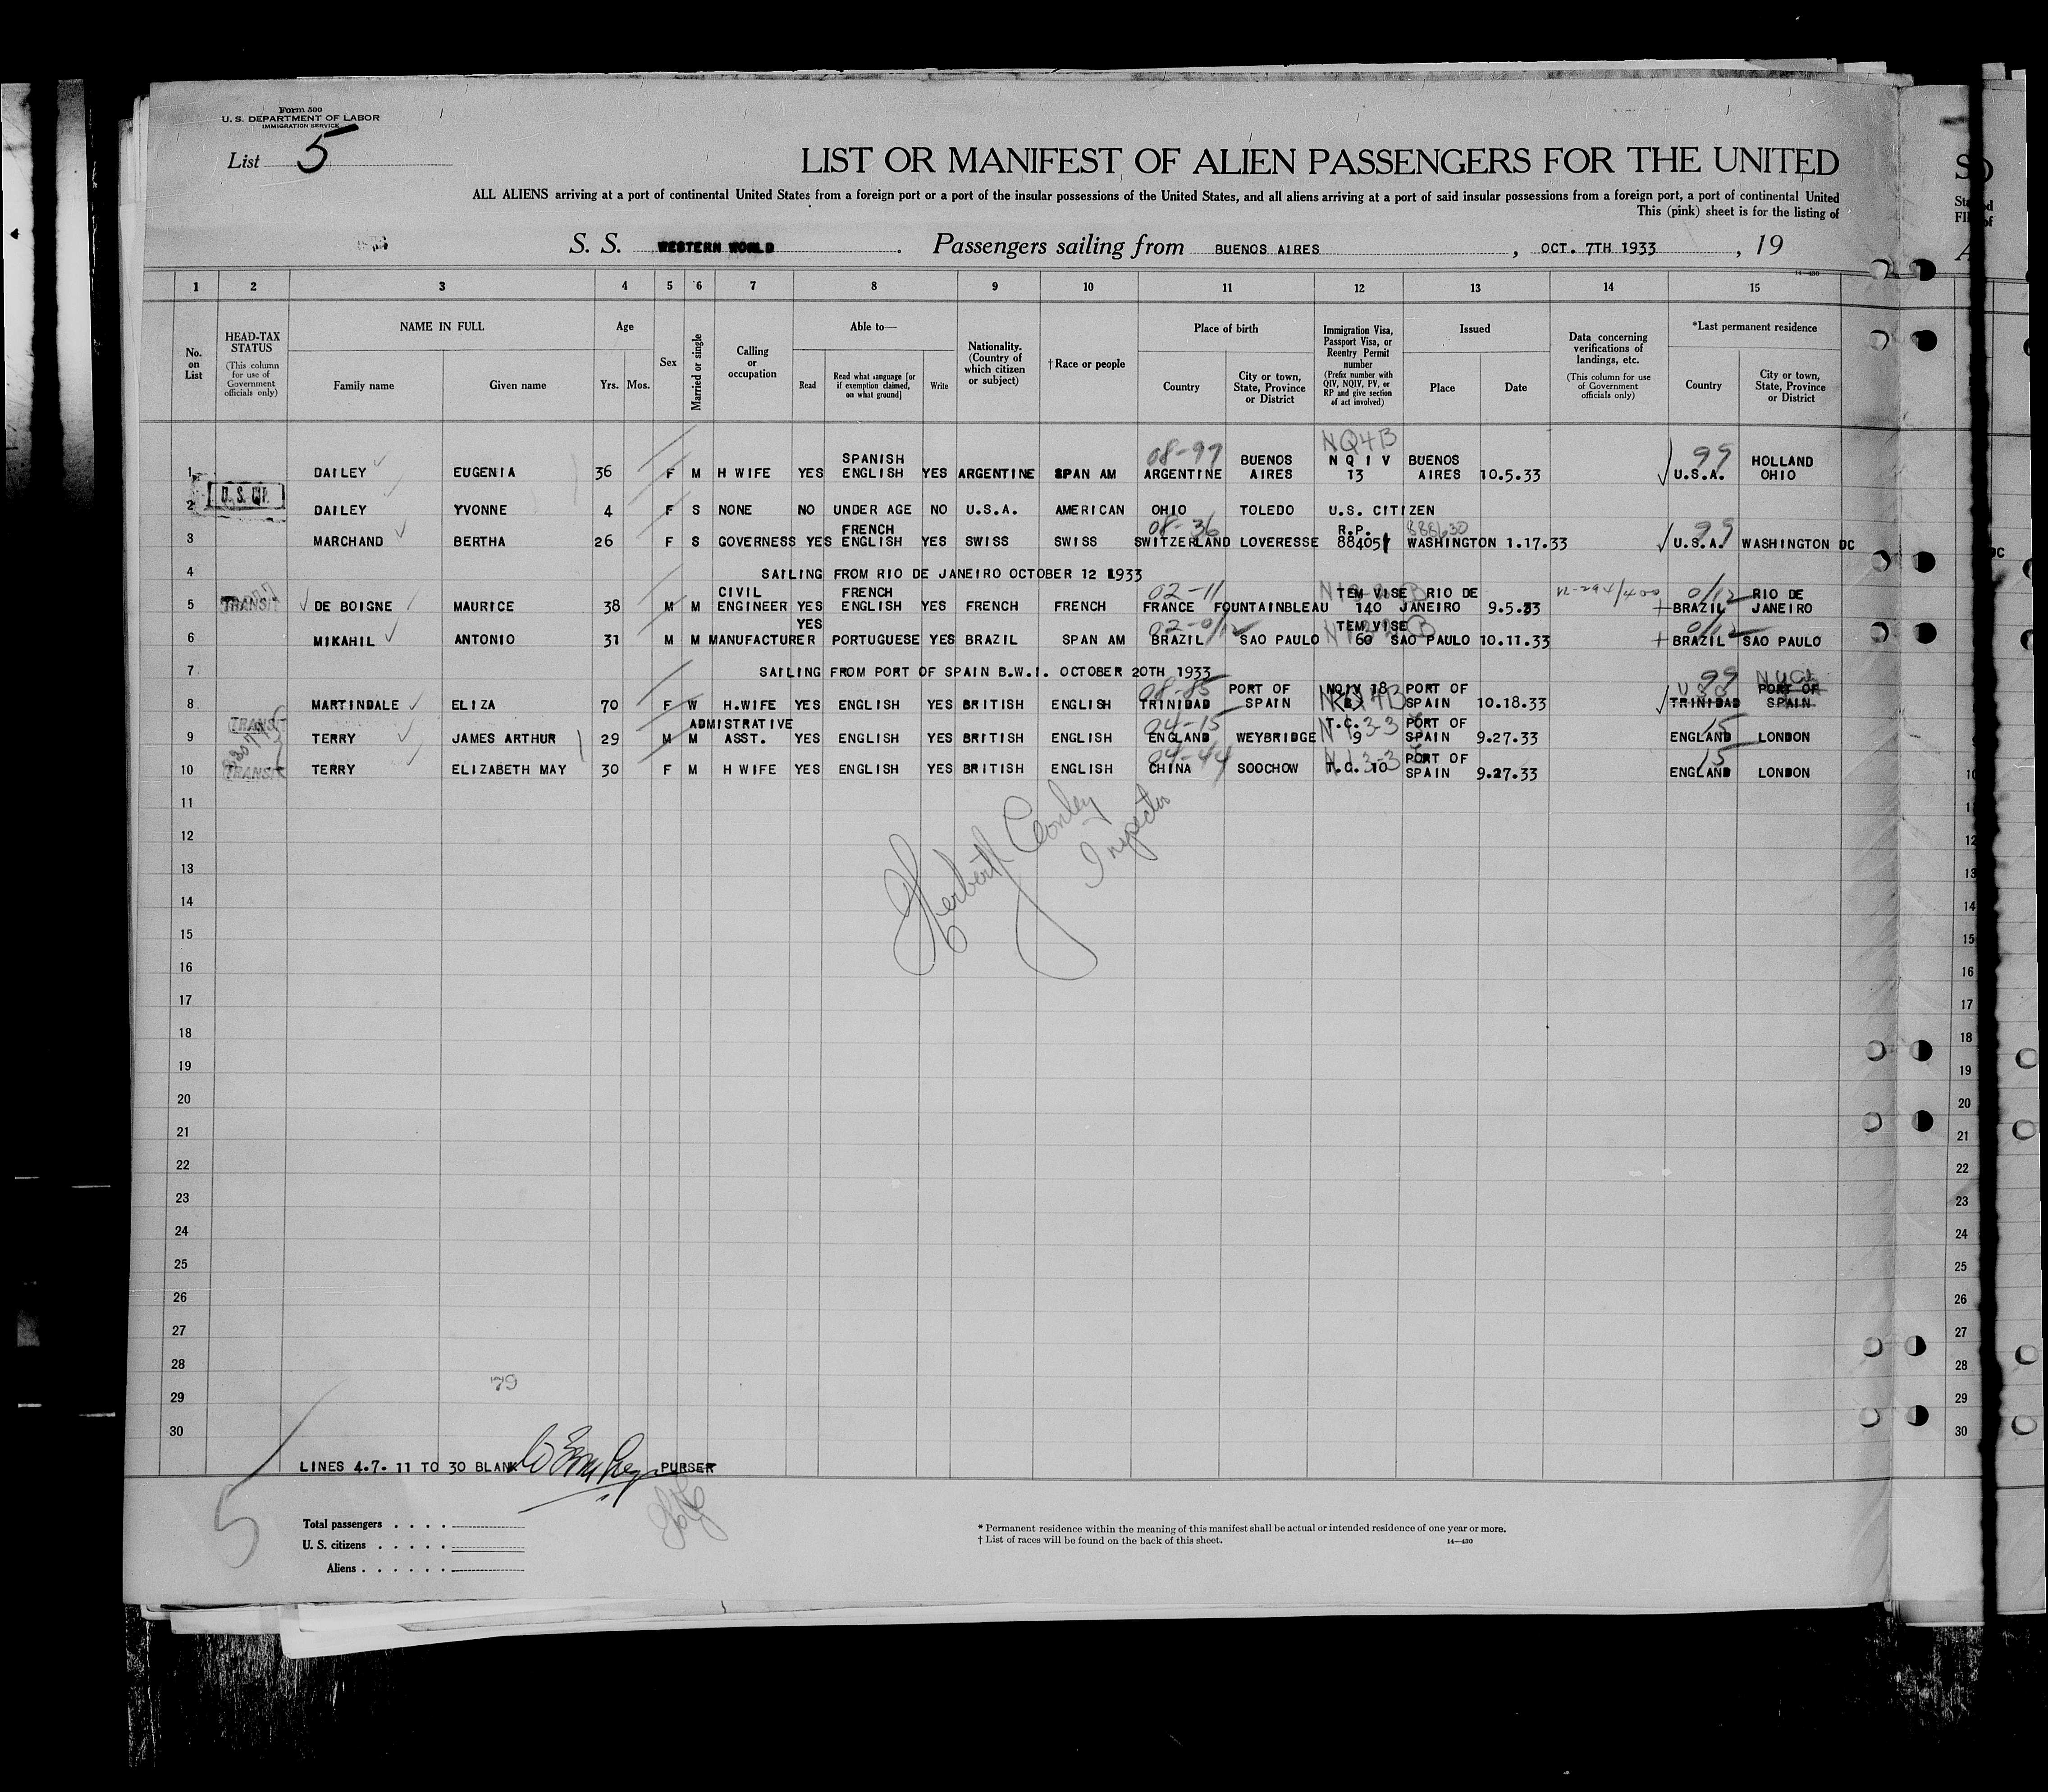 Form 500
U. S. DEPARTMENT OF LABOR
IMMIGRATION SERVICE
List 5
LIST OR MANIFEST OF ALIEN PASSENGERS FOR THE UNITED
ALL ALIENS arriving at a port of continental United States from a foreign port or a port of the insular possessions of the United States, and all aliens arriving at a port of said insular possessions from a foreign port, a port of continental United
This (pink) sheet is for the listing of
S. S. WESTERN WORLD . Passengers sailing from BUENOS AIRES , OCT. 7TH 1933 , 19
14—430
1 2 3 4 5 6 7 8 9 10 11 12 13 14 15
No. on List
HEAD-TAX STATUS (This column for use of Government officials only)
NAME IN FULL
Family name Given name
Age
Yrs. Mos.
Sex
Married or single
Calling or occupation
Able to—
Read
Read what language [or if exemption claimed, on what ground]
Write
Nationality. (Country of which citizen or subject)
† Race or people
Place of birth
Country
City or town, State, Province or District
Immigration Visa, Passport Visa, or Reentry Permit number (Prefix number with QIV, NQIV, PV, or RP and give section of act involved)
Issued
Place Date
Data concerning verifications of landings, etc. (This column for use of Government officials only)
*Last permanent residence
Country
City or town, State, Province or District
NQ4B
SPANISH 08-99 BUENOS N Q I V BUENOS 99 HOLLAND
1 DAILEY EUGENIA 36 F M H WIFE YES ENGLISH YES ARGENTINE SPAN AM ARGENTINE AIRES 13 AIRES 10.5.33 U.S.A. OHIO
U.S. CIT.
2 DAILEY YVONNE 4 F S NONE NO UNDER AGE NO U.S.A. AMERICAN OHIO TOLEDO U.S. CITIZEN
FRENCH 08-36 R.P. 888630 99
3 MARCHAND BERTHA 26 F S GOVERNESS YES ENGLISH YES SWISS SWISS SWITZERLAND LOVERESSE 884051 WASHINGTON 1.17.33 U.S.A. WASHINGTON DC
4 SAILING FROM RIO DE JANEIRO OCTOBER 12 1933
CIVIL FRENCH 02-11 TEM VISE RIO DE 0/12 RIO DE
5 TRANSIT DE BOIGNE MAURICE 38 M M ENGINEER YES ENGLISH YES FRENCH FRENCH FRANCE FOUNTAINBLEAU 140 JANEIRO 9.5.33 BRAZIL JANEIRO
YES 02-0/12 TEM VISE 0/12
6 MIKAHIL ANTONIO 31 M M MANUFACTURER PORTUGUESE YES BRAZIL SPAN AM BRAZIL SAO PAULO 60 SAO PAULO 10.11.33 BRAZIL SAO PAULO
7 SAILING FROM PORT OF SPAIN B.W.I. OCTOBER 20TH 1933
08-85 PORT OF NQIV 18 PORT OF 99 PORT OF
8 MARTINDALE ELIZA 70 F W H.WIFE YES ENGLISH YES BRITISH ENGLISH TRINIDAD SPAIN SPAIN 10.18.33 TRINIDAD SPAIN
TRANSIT ADMISTRATIVE 04-15 T.C. PORT OF 15
9 TERRY JAMES ARTHUR 29 M M ASST. YES ENGLISH YES BRITISH ENGLISH ENGLAND WEYBRIDGE 9 SPAIN 9.27.33 ENGLAND LONDON
04-44 PORT OF 15
10 TRANSIT TERRY ELIZABETH MAY 30 F M H WIFE YES ENGLISH YES BRITISH ENGLISH CHINA SOOCHOW T.C. 10 SPAIN 9.27.33 ENGLAND LONDON
11
12
13
14
15
16
17
18
19
20
21
22
23
24
25
26
27
28
29
30
Inspector
79
LINES 4.7. 11 TO 30 BLANK PURSER
5
Total passengers
U. S. citizens
Aliens
* Permanent residence within the meaning of this manifest shall be actual or intended residence of one year or more.
† List of races will be found on the back of this sheet.
14—430